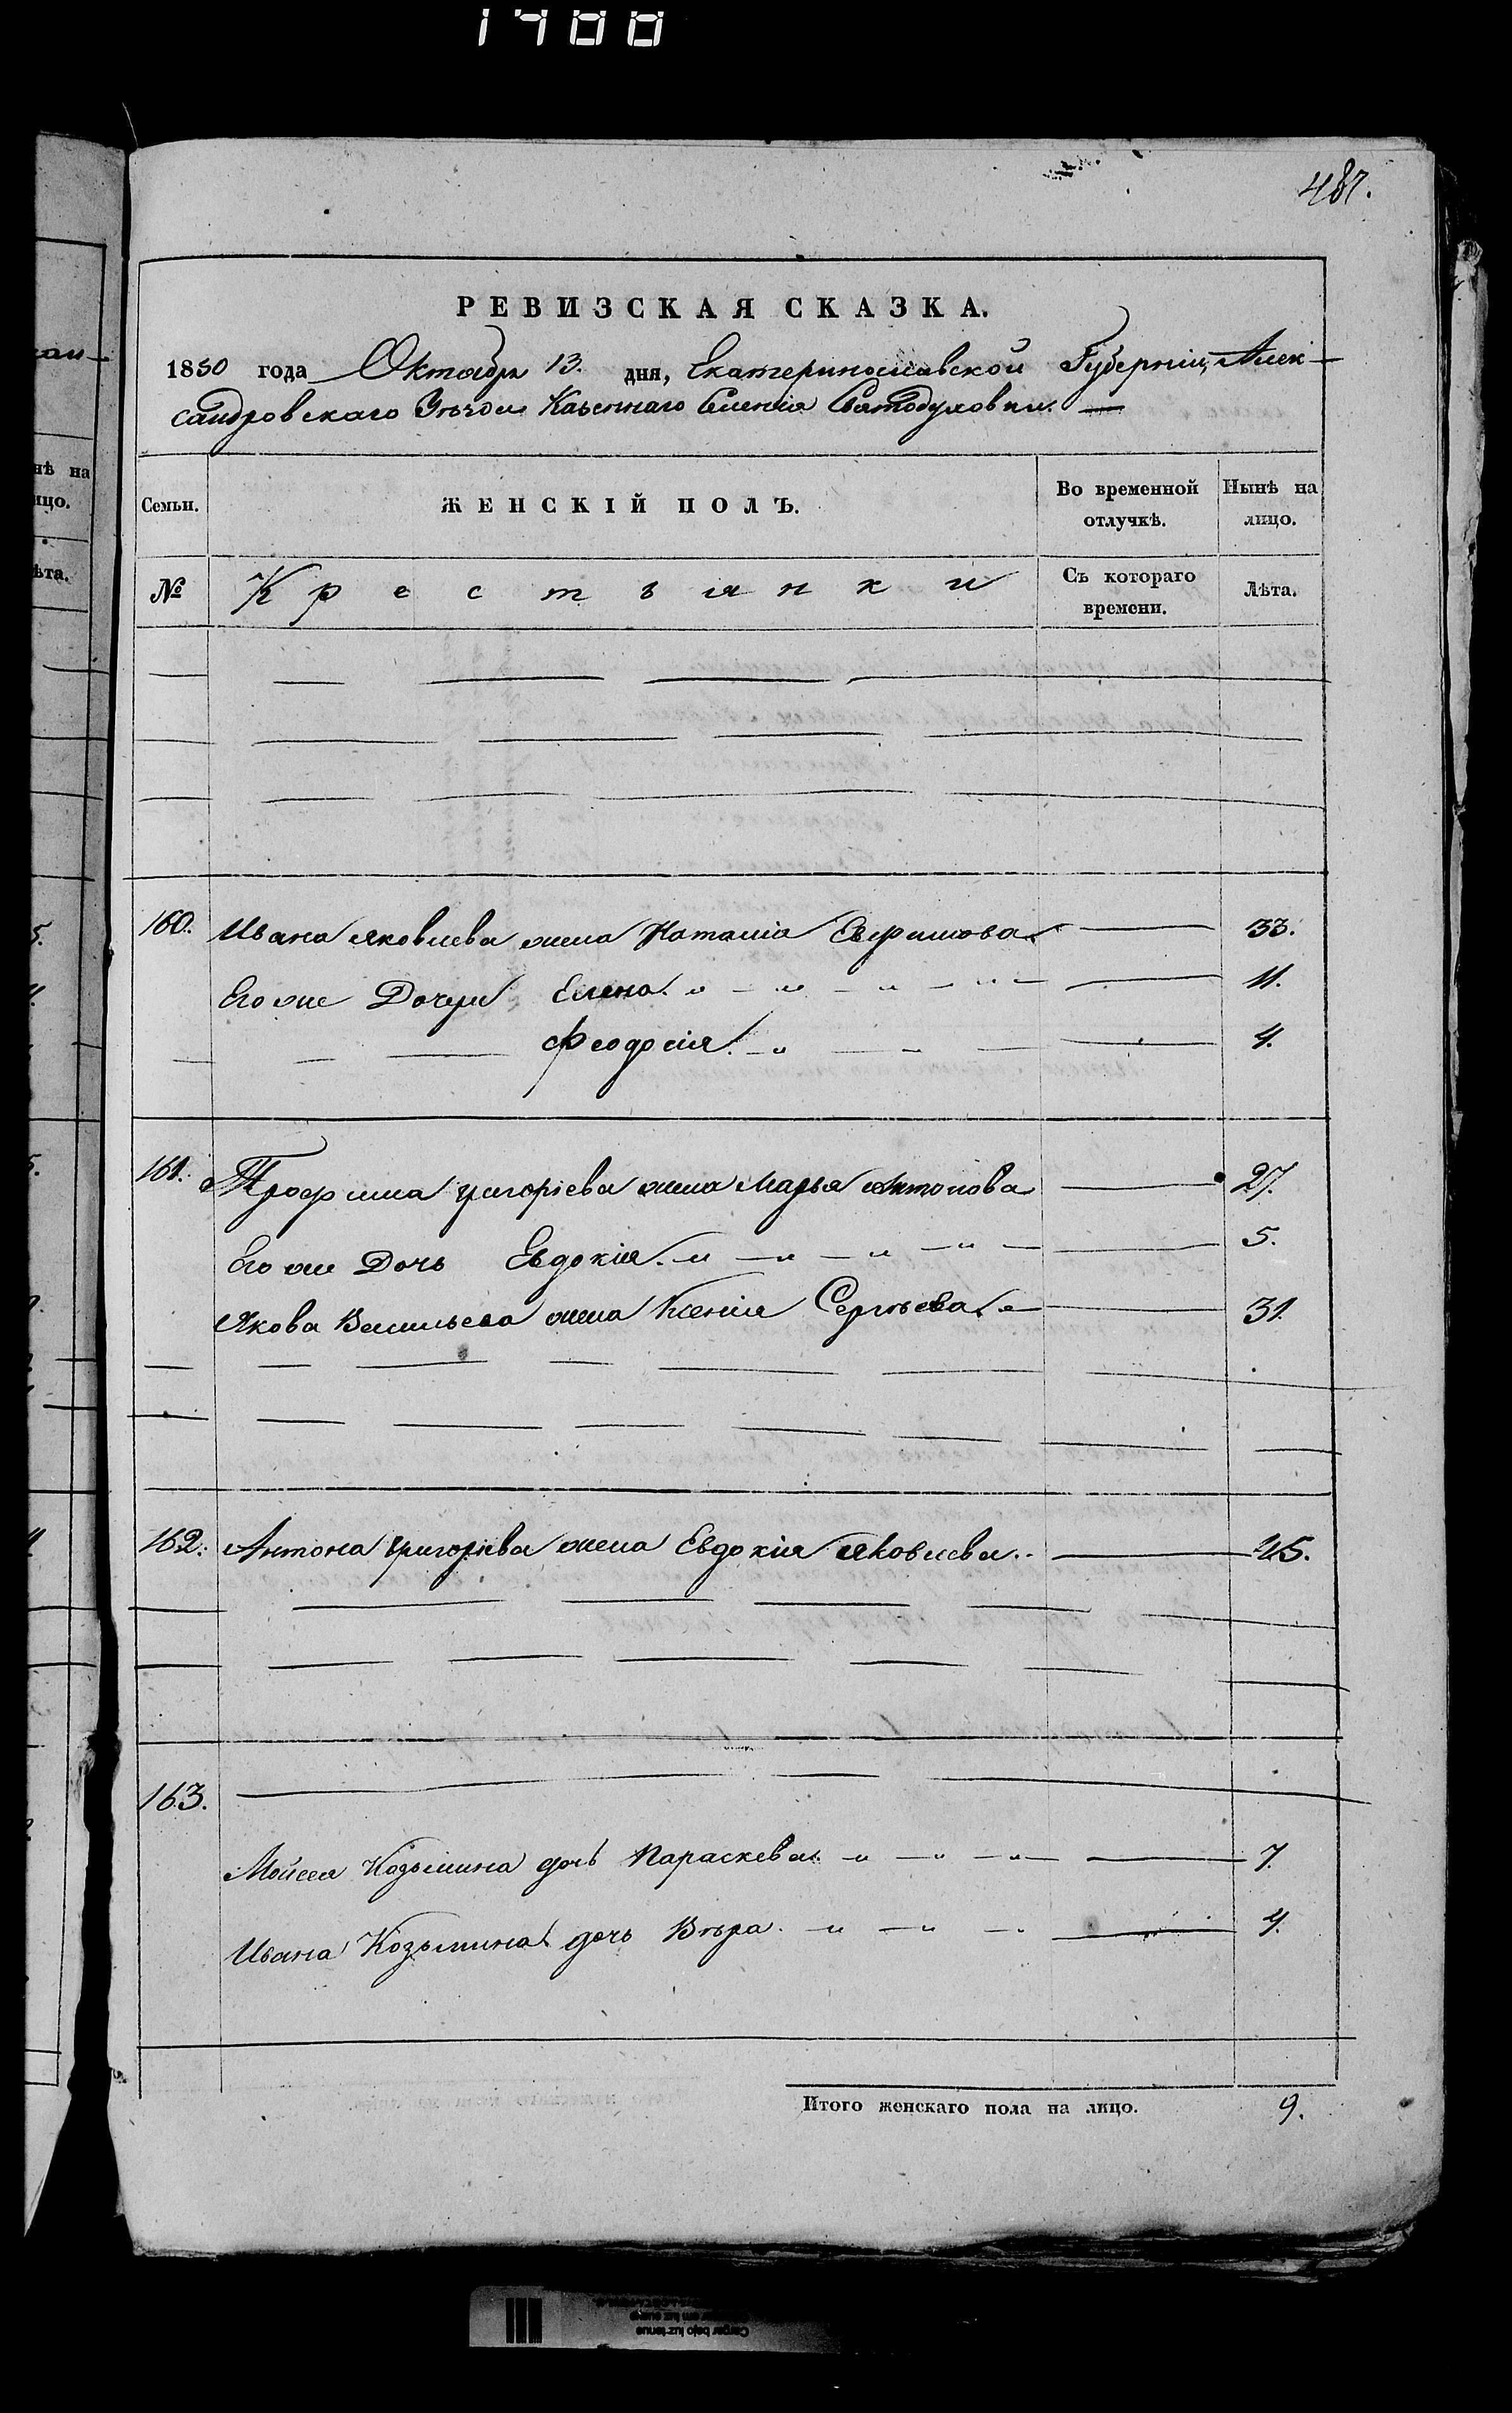 1700
487.
РЕВИЗСКАЯ СКАЗКА.
1850 года Октября 13. дня, Екатеринославской Губерніи, Алек-
сандровскаго Уѣзда Казеннаго Селенія Святодуховки. —
Семьи. ЖЕНСКІЙ ПОЛЪ. Во временной отлучкѣ. Нынѣ на лицо.
№ Крестьянки Съ котораго времени. Лѣта.
160. Ивана Яковлева жена Наталія Ефимова 33.
Его же Дочери Елена. 11.
Феодосія. 4.
161. Трофима Григоріева жена Марья Антонова 27.
Его же Дочь Евдокія. 5.
Якова Васильева жена Ксенія Сергѣева 31.
162. Антона Григоріева жена Евдокія Яковлева. 45.
163.
Мойсея Козьмина дочь Параскева 7.
Ивана Козьмина дочь Вѣра. 4.
Итого женскаго пола на лицо. 9.